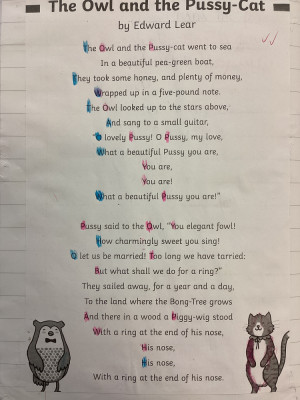 The Owl and the Pussy-Cat
by Edward Lear
The Owl and the Pussy-cat went to sea
In a beautiful pea-green boat,
They took some honey, and plenty of money,
Wrapped up in a five-pound note.
The Owl looked up to the stars above,
And sang to a small guitar,
"O lovely Pussy! O Pussy, my love,
What a beautiful Pussy you are,
You are,
You are!
What a beautiful Pussy you are!"
Pussy said to the Owl, "You elegant fowl!
How charmingly sweet you sing!
O let us be married! Too long we have tarried:
But what shall we do for a ring?"
They sailed away, for a year and a day,
To the land where the Bong-Tree grows
And there in a wood a Piggy-wig stood
With a ring at the end of his nose,
His nose,
His nose,
With a ring at the end of his nose.